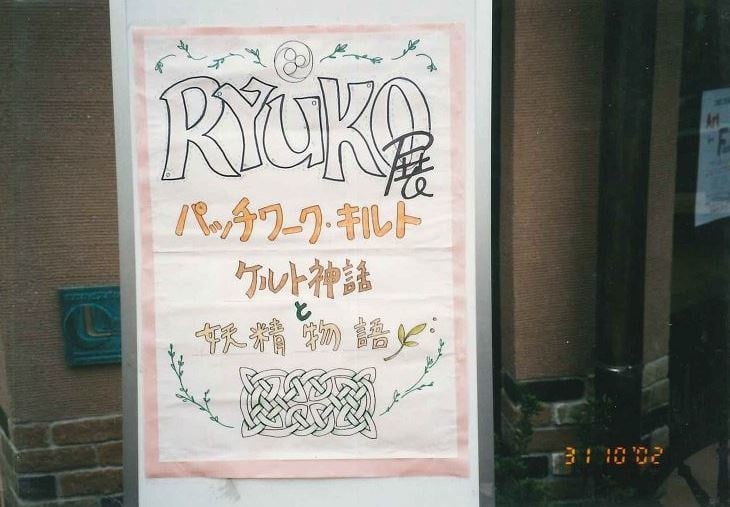 RYUKO展
パッチワーク・キルト
ケルト神話
と
妖精物語
Art
31 10 '02